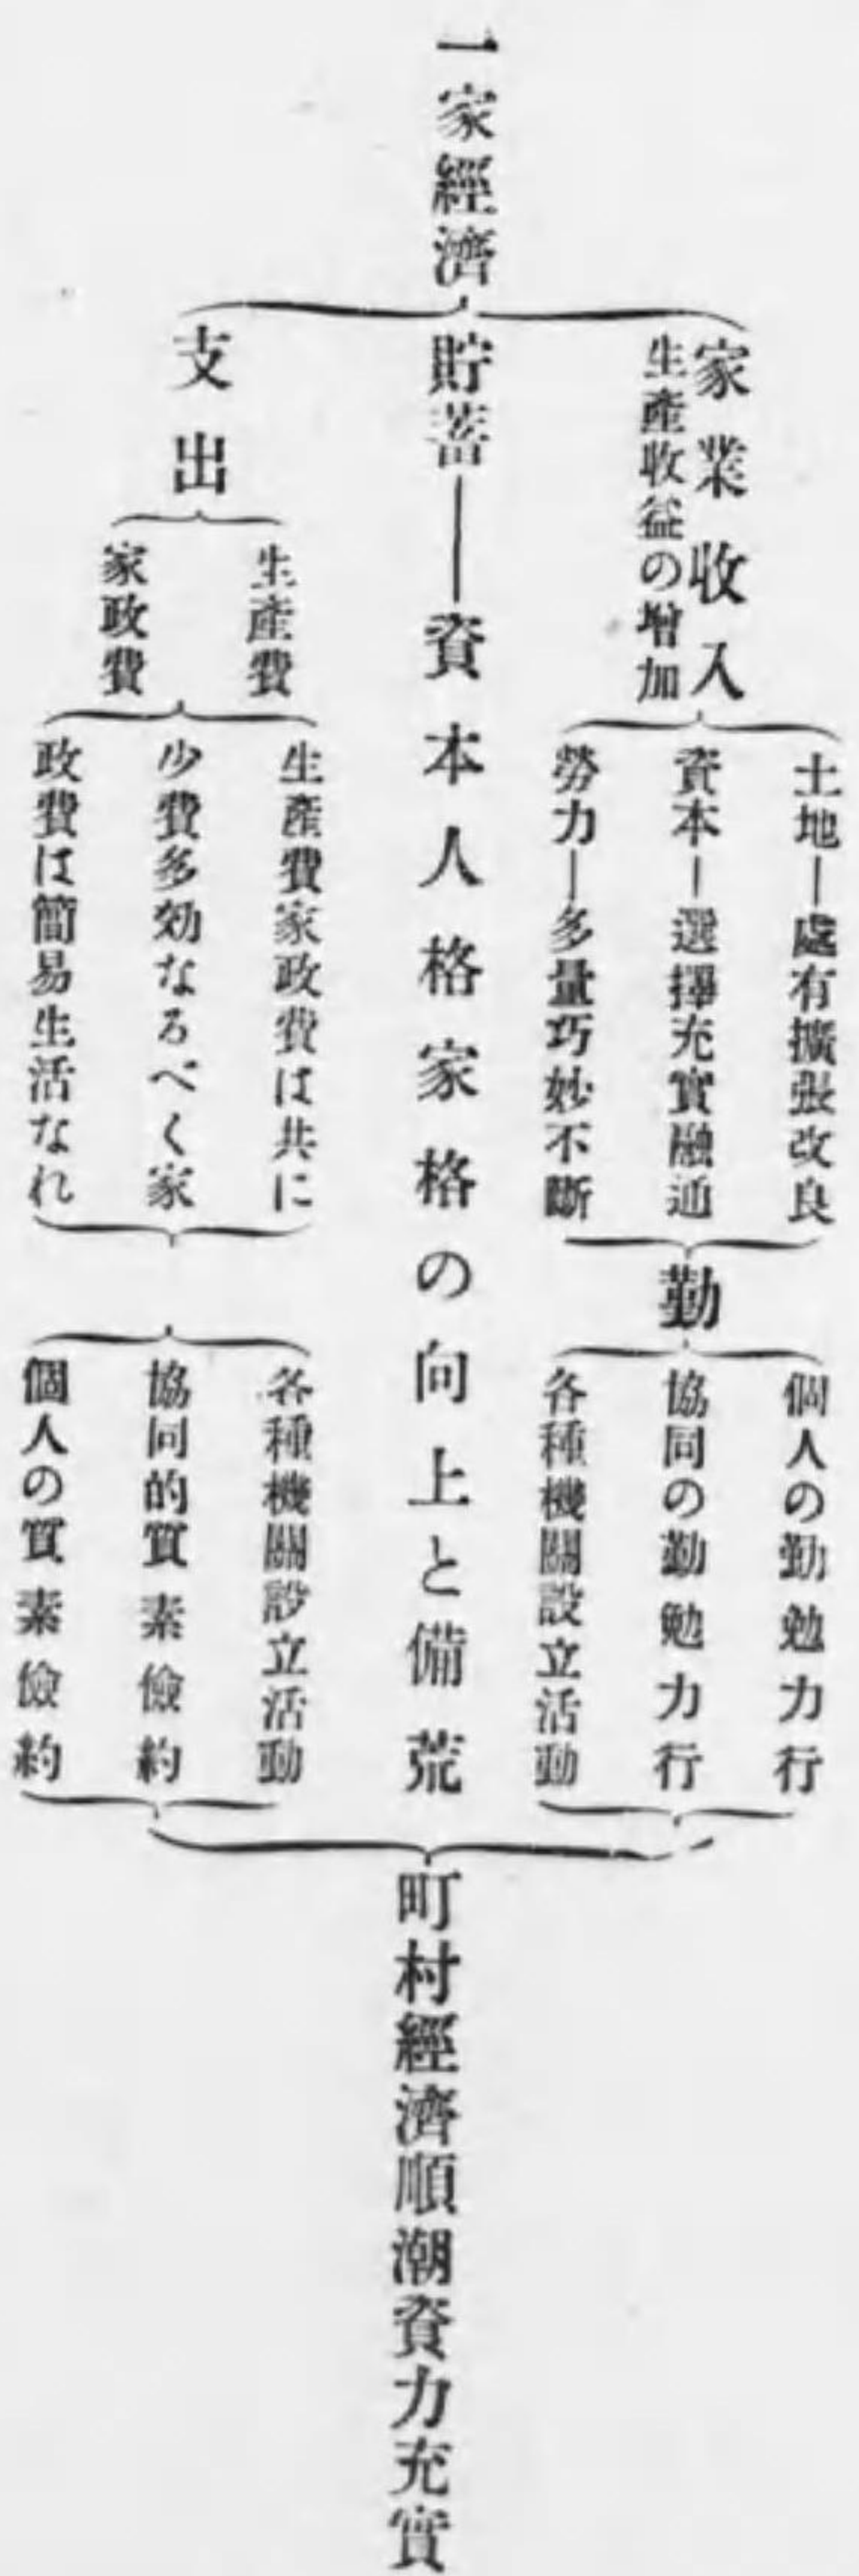 一家經濟
家業收入
生產收益の增加
土地―處有擴張改良
資本―選擇充實融通
勞力―多量巧妙不斷
勤
個人の勤勉力行
協同の勤勉力行
各種機關設立活動
貯蓄―資本人格家格の向上と備荒
支出
生產費
家政費
生產費家政費は共に
少費多効なるべく家
政費は簡易生活なれ
各種機關設立活動
協同的質素儉約
個人の質素儉約
町村經濟順潮資力充實